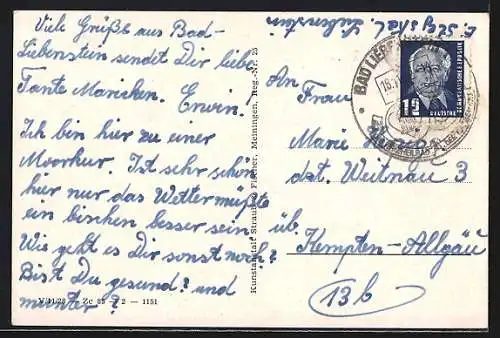 Viele Grüße aus Bad-
Liebenstein sendet Dir liebe
Tante Mariechen. Erwin!
Ich bin hier zu einer
Moorkur. Ist sehr schön
hier nur das Wetter müßte
ein bischen besser sein
Wie geht es Dir sonst noch?
Bist Du gesund? und
munter?
V/11/28 Zc 2 — 1151
Kunstanstalt Straub & Fischer, Meiningen, Reg.-Nr. 25
BAD LIEB
12
DEUTSCHE
An
Frau
Marie
dst. Weitnau 3
üb.
Kempten-Allgäu
13b